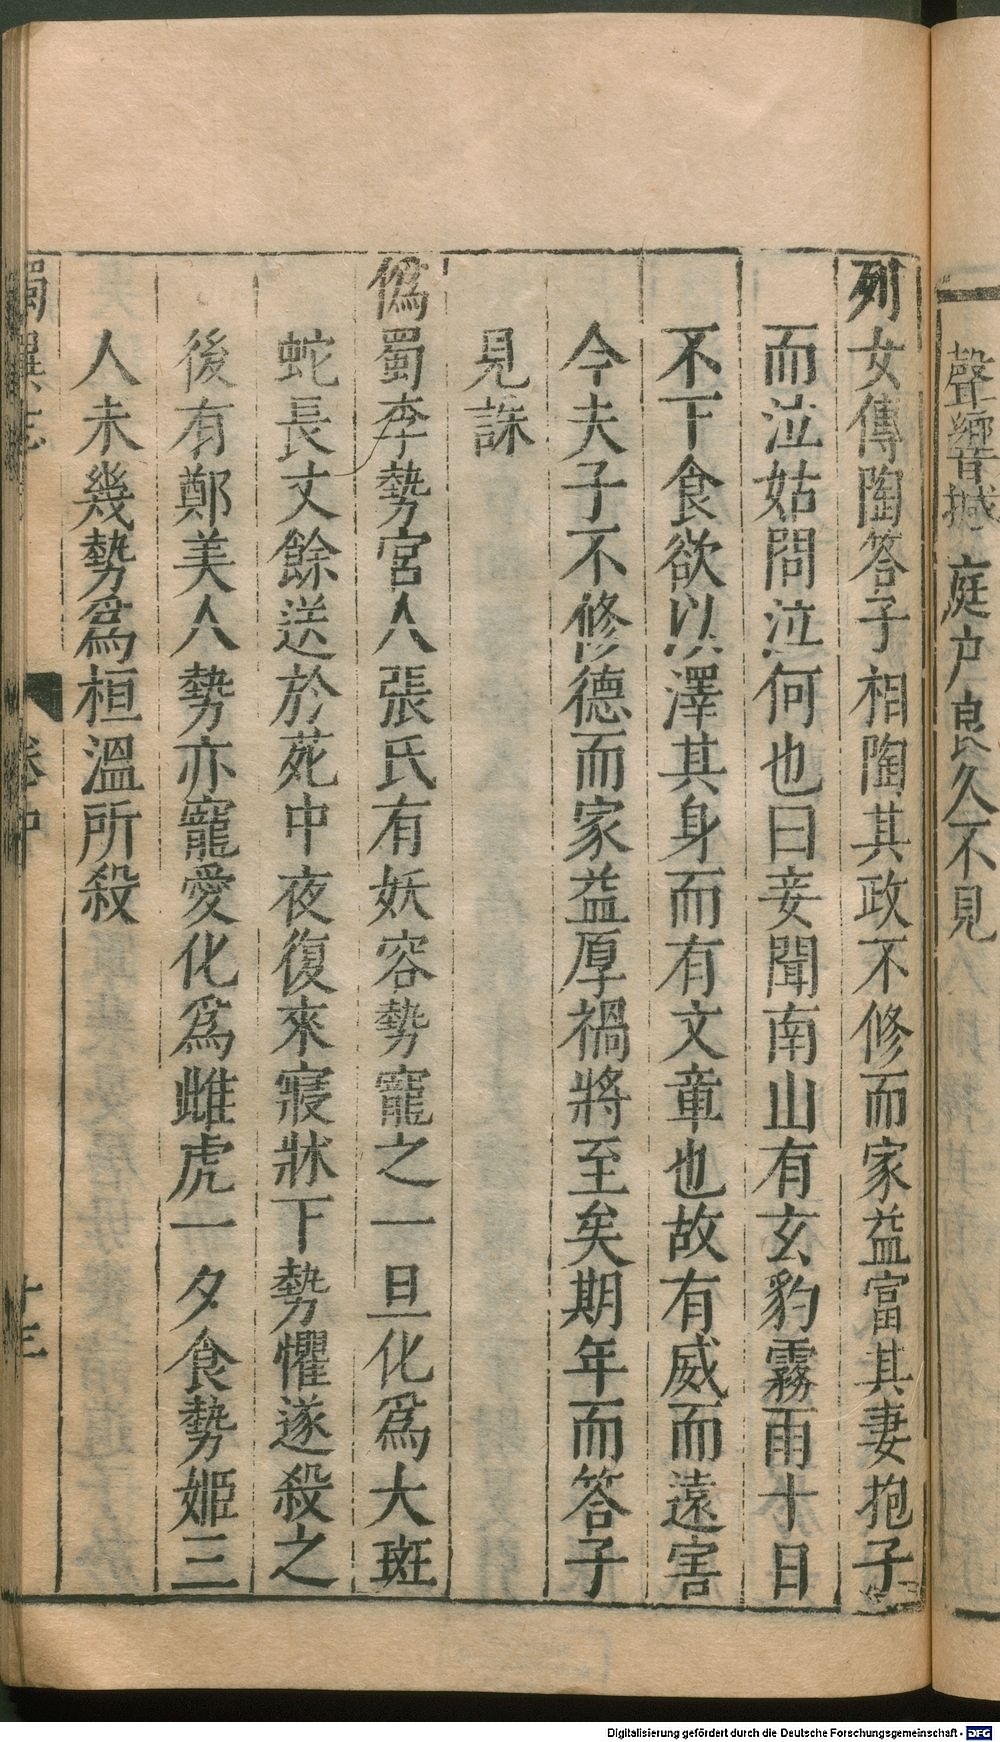 聲響撼庭户良久不見
列女傳陶答子相陶其政不修而家益富其妻抱子
而泣姑問泣何也曰妾聞南山有玄豹霧雨十日
不下食欲以澤其身而有文章也故有威而遠害
今夫子不修德而家益厚禍將至矣期年而答子
見誅
僞蜀李勢宮人張氏有妖容勢寵之一旦化爲大斑
蛇長丈餘送於苑中夜復來寢牀下勢懼遂殺之
後有鄭美人勢亦寵愛化爲雌虎一夕食勢姬三
人未幾勢爲桓溫所殺
卷中
十三
Digitalisierung gefördert durch die Deutsche Forschungsgemeinschaft - DFG